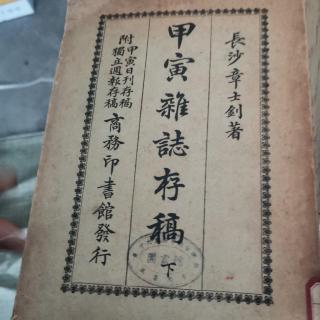 長沙章士釗著
甲寅雜誌存稿 下
附 甲寅日刊存稿
獨立週報存稿
商務印書館發行